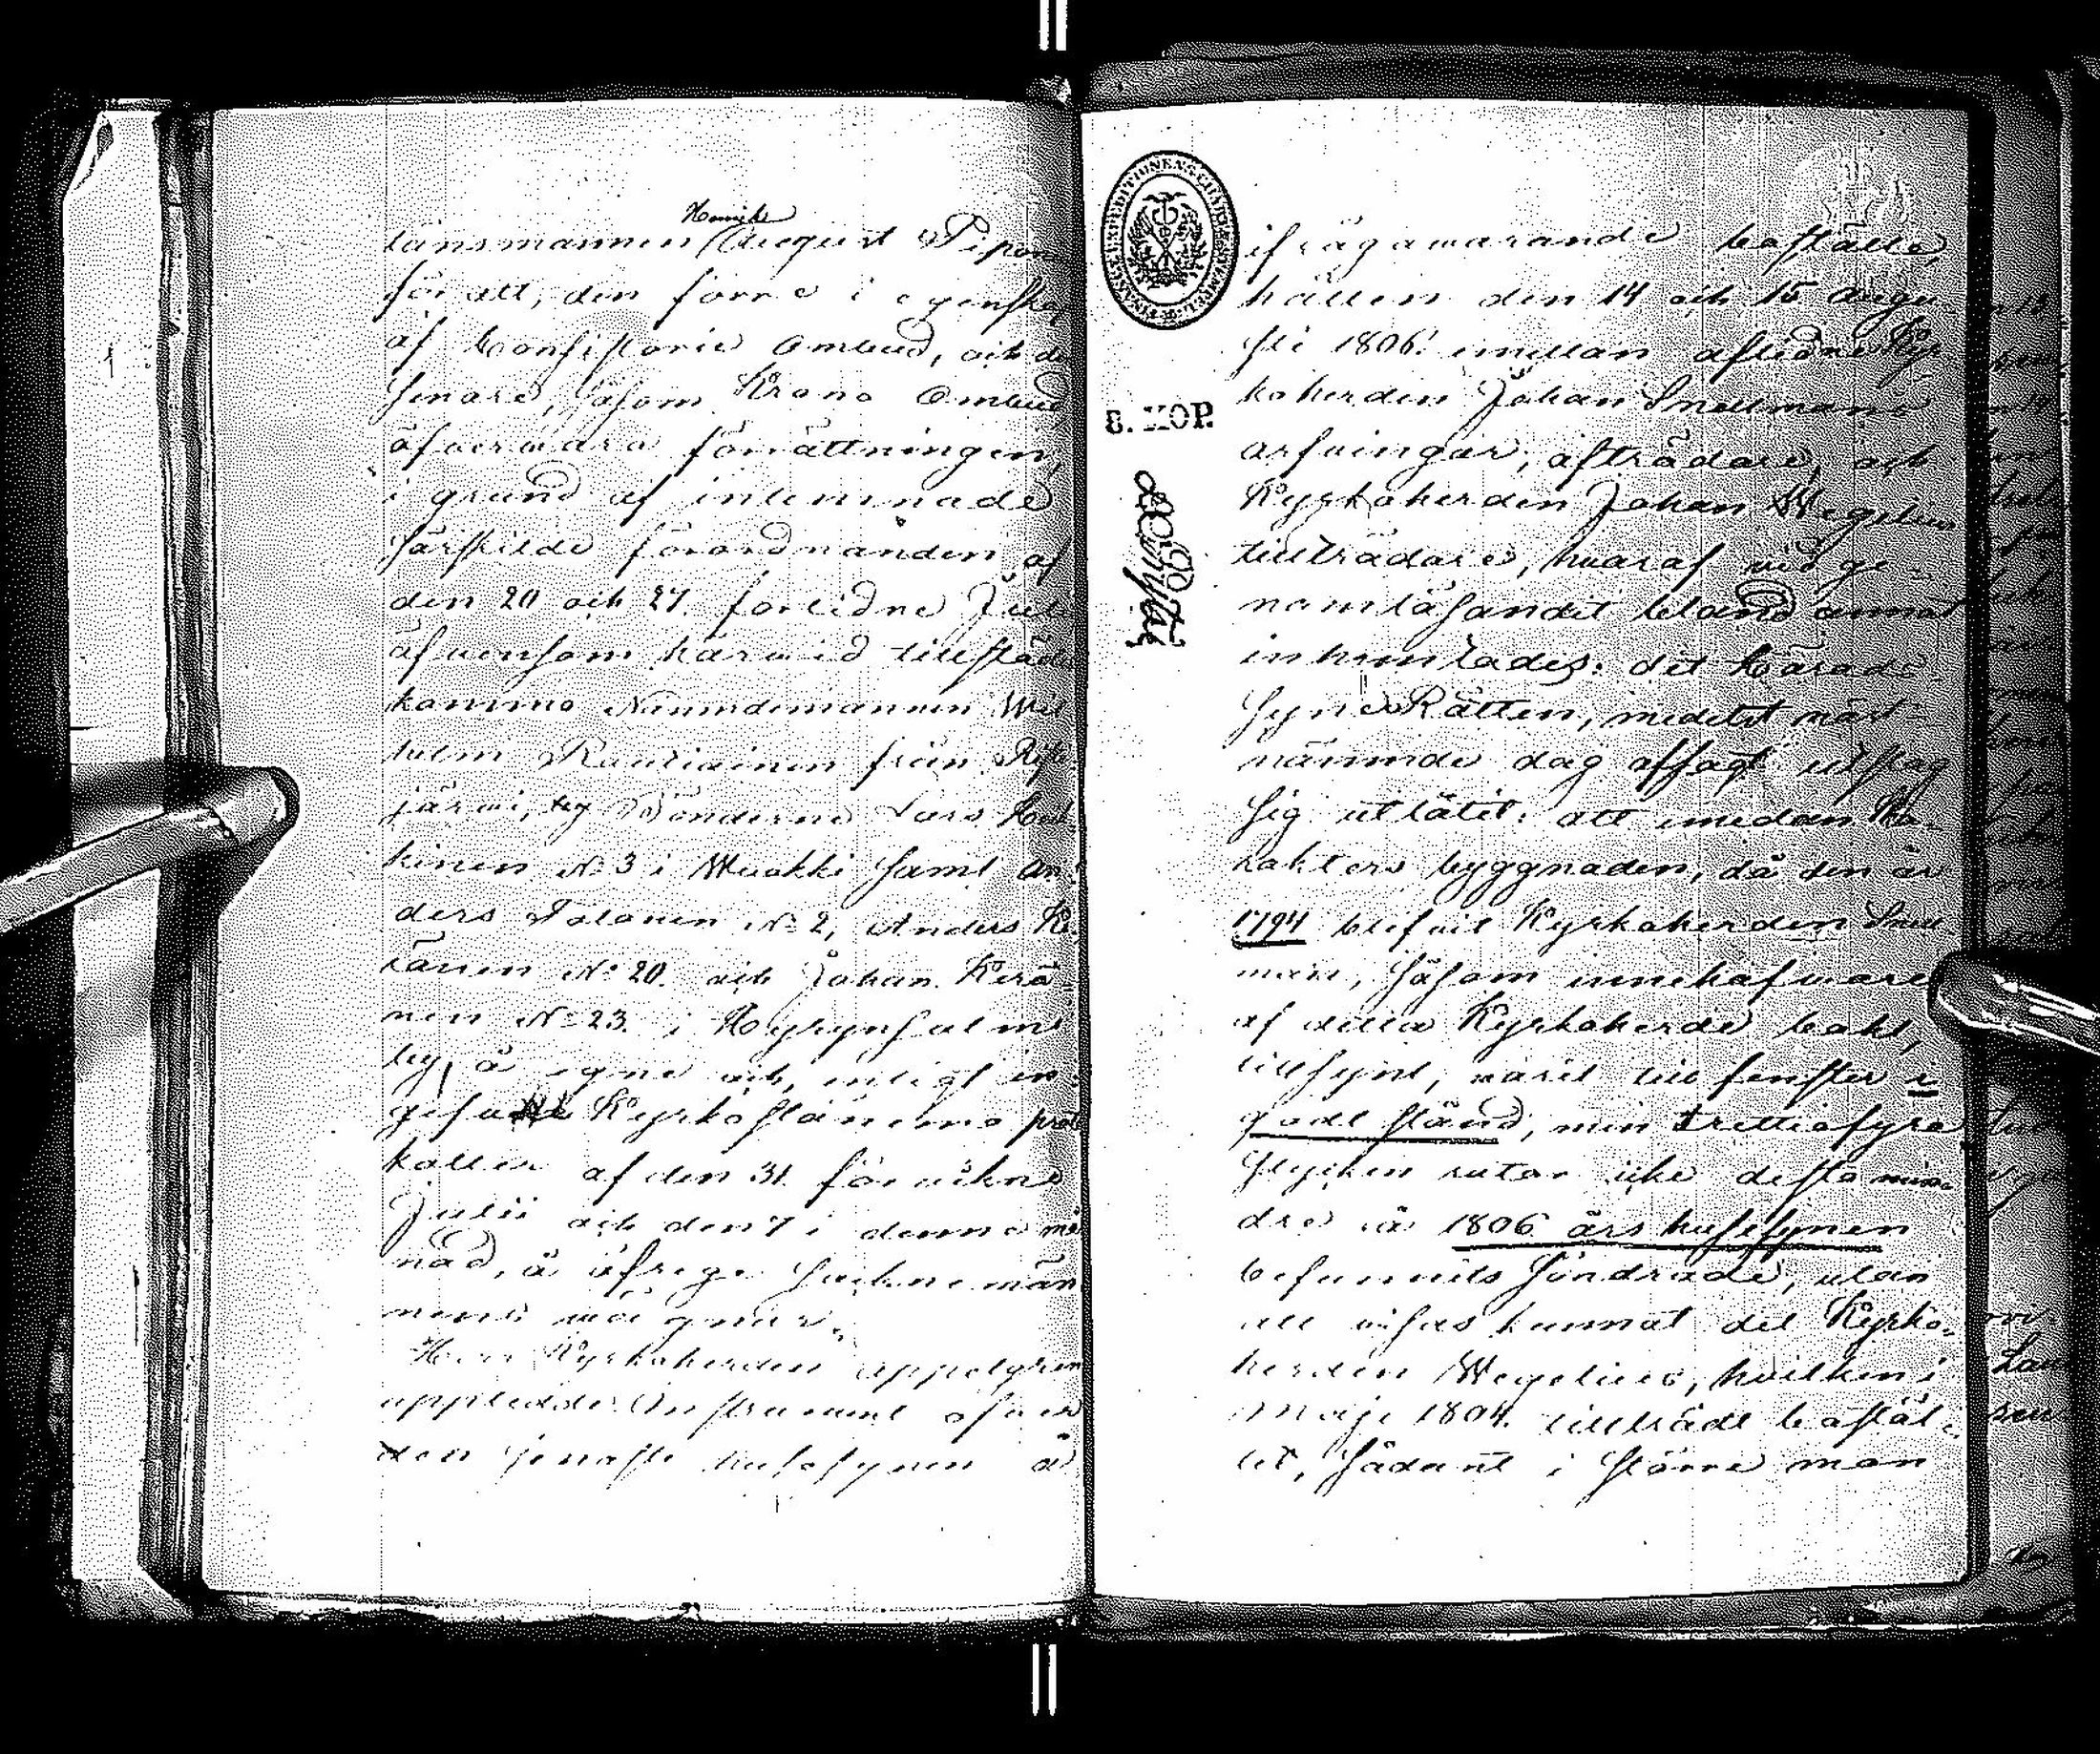 Henrik
länsmannen August Pipon
för att, den förre i egenska
af Consistorie Ombud, och de
senare, såsom Krono Ombud
öfvervara förrättningen,
i grund af inlemnade
särskilde förordnanden af
den 20 och 27 förlidne Juli
äfvensom härvid tillstädes
kommo Nämndemannen Wil
helm Rautiainen från Risti
järvi, Bönderne Lars Hei
kinen No 3 i Wuokki samt An
ders Tolonen No 2, Anders Ke
ränen No 20. och Johan Kerä
nen No 23. i Hyrynsalmi
by, å egne och, enligt in
gifna Kyrkostämmo proto
koller af den 31 förvikne
Julii och den 7 i denna må
nad, å öfrige Socknemän
nens vägnar.
Herr Kyrkoherden Appelgren
uppledde Instrument öfver
den senaste husesynen å
8. KOP.
ifrågavarande boställe,
hållen den 14 och 15 Augu
sti 1806. emellan aflidne Kyr
koherden Johan Snellmans
arfvingar, afträdare, och
Kyrkoherden Johan Wegelius
tillträdare, hvaraf vid ge
nomläsandet bland annat
inhemtades: det Härads
Syne Rätten, medelst märk
nämnde dag afsagt utslag
sig utlåtit: att emedan Ka
rakters byggnaden, då den år
1794 blifvit Kyrkoherden Snell
man, såsom innehafvare
af detta Kyrkoherde bohl,
tillsynt, varit till fenster i
godt stånd, men trettiofyra
stycken rutor icke desto min
dre å 1806 års husesynen
befunnits söndrade, utan
att visas kunnat det Kyrko
herden Wegelius, hvilken i
Maji 1804. tillträdt bostäl
let, sådant i större mån